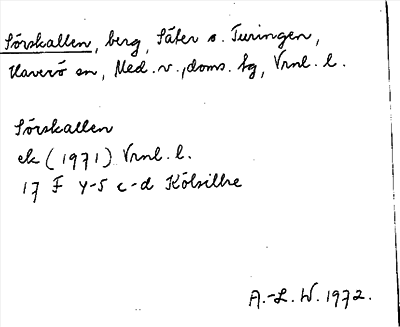 Sörskallen, berg, Säter s. Turingen,
Haverö sn, Med. v., doms. tg, Vrnl. l.
Sörskallen
ek (1971) Vrnl. l.
17 F 4-5 c-d Kölsillre
A.-L. W. 1972.